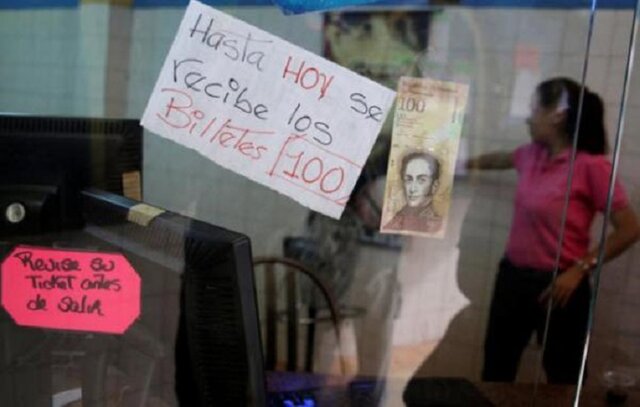 Hasta HOY se
recibe los
Billetes 100
100
Revise su
Ticket antes
de salir